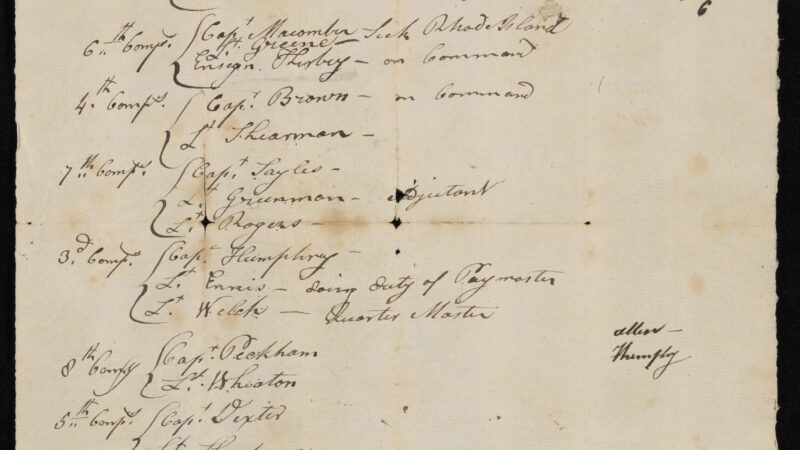 6
6th Compy. Capt Macomber Sick Rhode Island
Lt. Greene
Ensign. Kirby — on Command
4th Compy. Capt Brown — on Command
Lt Shearman —
7th Compy. Capt Sayles —
Lt Greenman — Adjutant
Lt Rogers —
3d Compy. Capt Humphrey —
Lt. Ennis — doing duty of Paymaster
Lt Welch — Quarter Master
allen —
8th Compy Capt. Peckham
Lt. Wheaton
5th Compy. Capt Dexter
Lt.